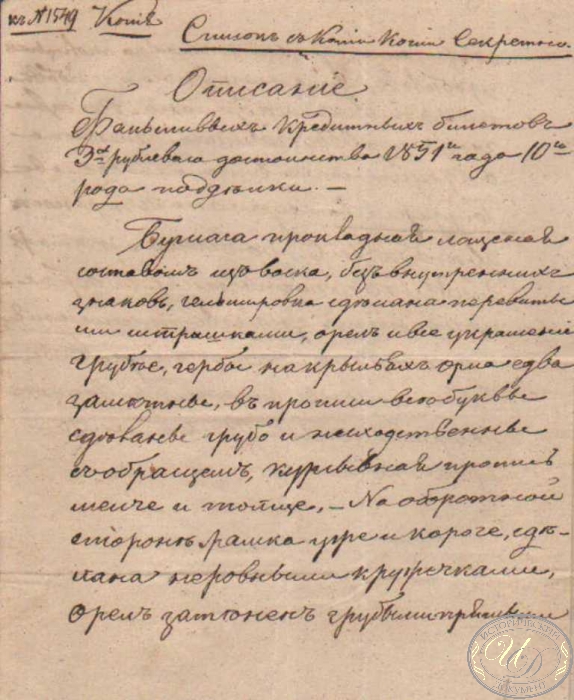 къ № 1549 Копія
Списокъ съ Копіи Копіи Секретно.
Описаніе
Фальшивыхъ кредитныхъ билетовъ
3хъ рублеваго достоинства 1851го года 10го
рода поддѣлки. —
Бумага прокладная лощеная
составомъ изъ воска, безъ внутреннихъ
знаковъ, гельшировка сдѣлана перевиты
ми штрашками, орелъ и все украшеніе
грубые, гербы на крыльяхъ орла едва
замѣтные, въ прописи всѣ буквы
сдѣланы грубо и несходственные
съ образцемъ, курсывная пропись
мѣлче и толще, — На оборотной
сторонѣ рамка уже и короче, сдѣ-
лана неровными кружечками,
орелъ затененъ грубыми прямыми
ИСТОРИЧЕСКИЙ
ДОКУМЕНТ